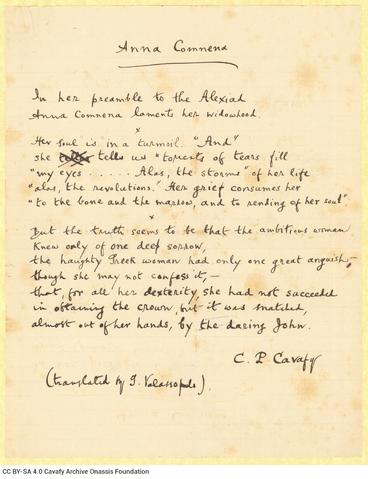 Anna Comnena
In her preamble to the Alexiad
Anna Comnena laments her widowhood.
x
Her soul is in a turmoil. "And"
she tells us "torrents of tears fill
"my eyes ..... Alas, the storms" of her life
"alas, the revolutions." Her grief consumes her
"to the bone and the marrow, and to rending of her soul".
x
But the truth seems to be that the ambitious woman
knew only of one deep sorrow,
the haughty Greek woman had only one great anguish,
though she may not confess it, –
that, for all her dexterity, she had not succeeded
in obtaining the crown, but it was snatched,
almost out of her hands, by the daring John.
C. P. Cavafy
(translated by G. Valassopoulo).
CC BY-SA 4.0 Cavafy Archive Onassis Foundation